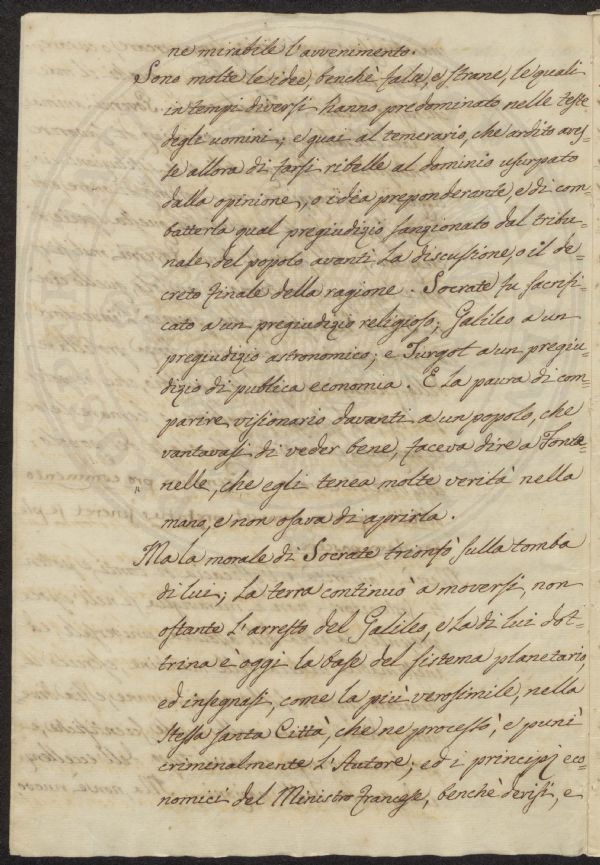 ne mirabile l'avvenimento.
Sono molte le idee, benchè false, e strane, le quali
in tempi diversi hanno predominato nelle teste
degli uomini; e guai al temerario, che ardito aves-
se allora di farsi ribelle al dominio usurpato
dalla opinione, o idea preponderante, e di com-
batterla qual pregiudizio sanzionato dal tribu-
nale del popolo avanti la discussione, o il de-
creto finale della ragione. Socrate fu sacrifi-
cato a un pregiudizio religioso; Galileo a un
pregiudizio astronomico; e Turgot a un pregiu-
dizio di publica economia. E la paura di com-
parire visionario davanti a un popolo, che
vantavasi di veder bene, faceva dire a Fonte-
nelle, che egli tenea molte verità nella
mano, e non osava di aprirla.
Ma la morale di Socrate trionfò sulla tomba
di lui; la terra continuò a moversi non
ostante l'arresto del Galileo, e la di lui dot-
trina è oggi la base del sistema planetario,
ed insegnasi, come la più verosimile, nella
stessa santa Città, che ne processò, e punì
criminalmente l'Autore; ed i principj eco-
nomici del Ministro francese, benchè derisi, e